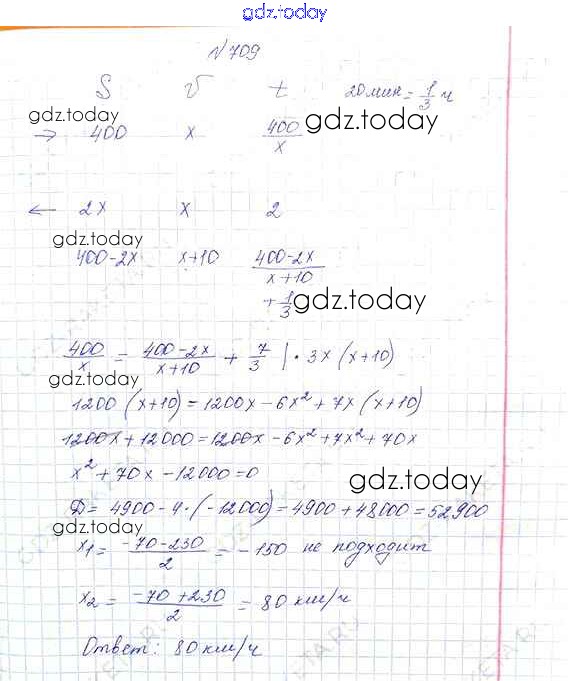 gdz.today
№ 709
S v t 20 мин = 1/3 ч
gdz.today
gdz.today
⇒ 400 x 400/x
← 2x x 2
gdz.today
400-2x x+10 (400-2x)/(x+10)
+ 1/3
gdz.today
400/x = (400-2x)/(x+10) + 7/3 | · 3x (x+10)
gdz.today
1200 (x+10) = 1200x - 6x² + 7x (x+10)
1200x + 12000 = 1200x - 6x² + 7x² + 70x
x² + 70x - 12000 = 0
gdz.today
D = 4900 - 4 · (-12000) = 4900 + 48000 = 52900
gdz.today
x₁ = (-70-230)/2 = -150 не подходит
x₂ = (-70+230)/2 = 80 км/ч
Ответ: 80 км/ч